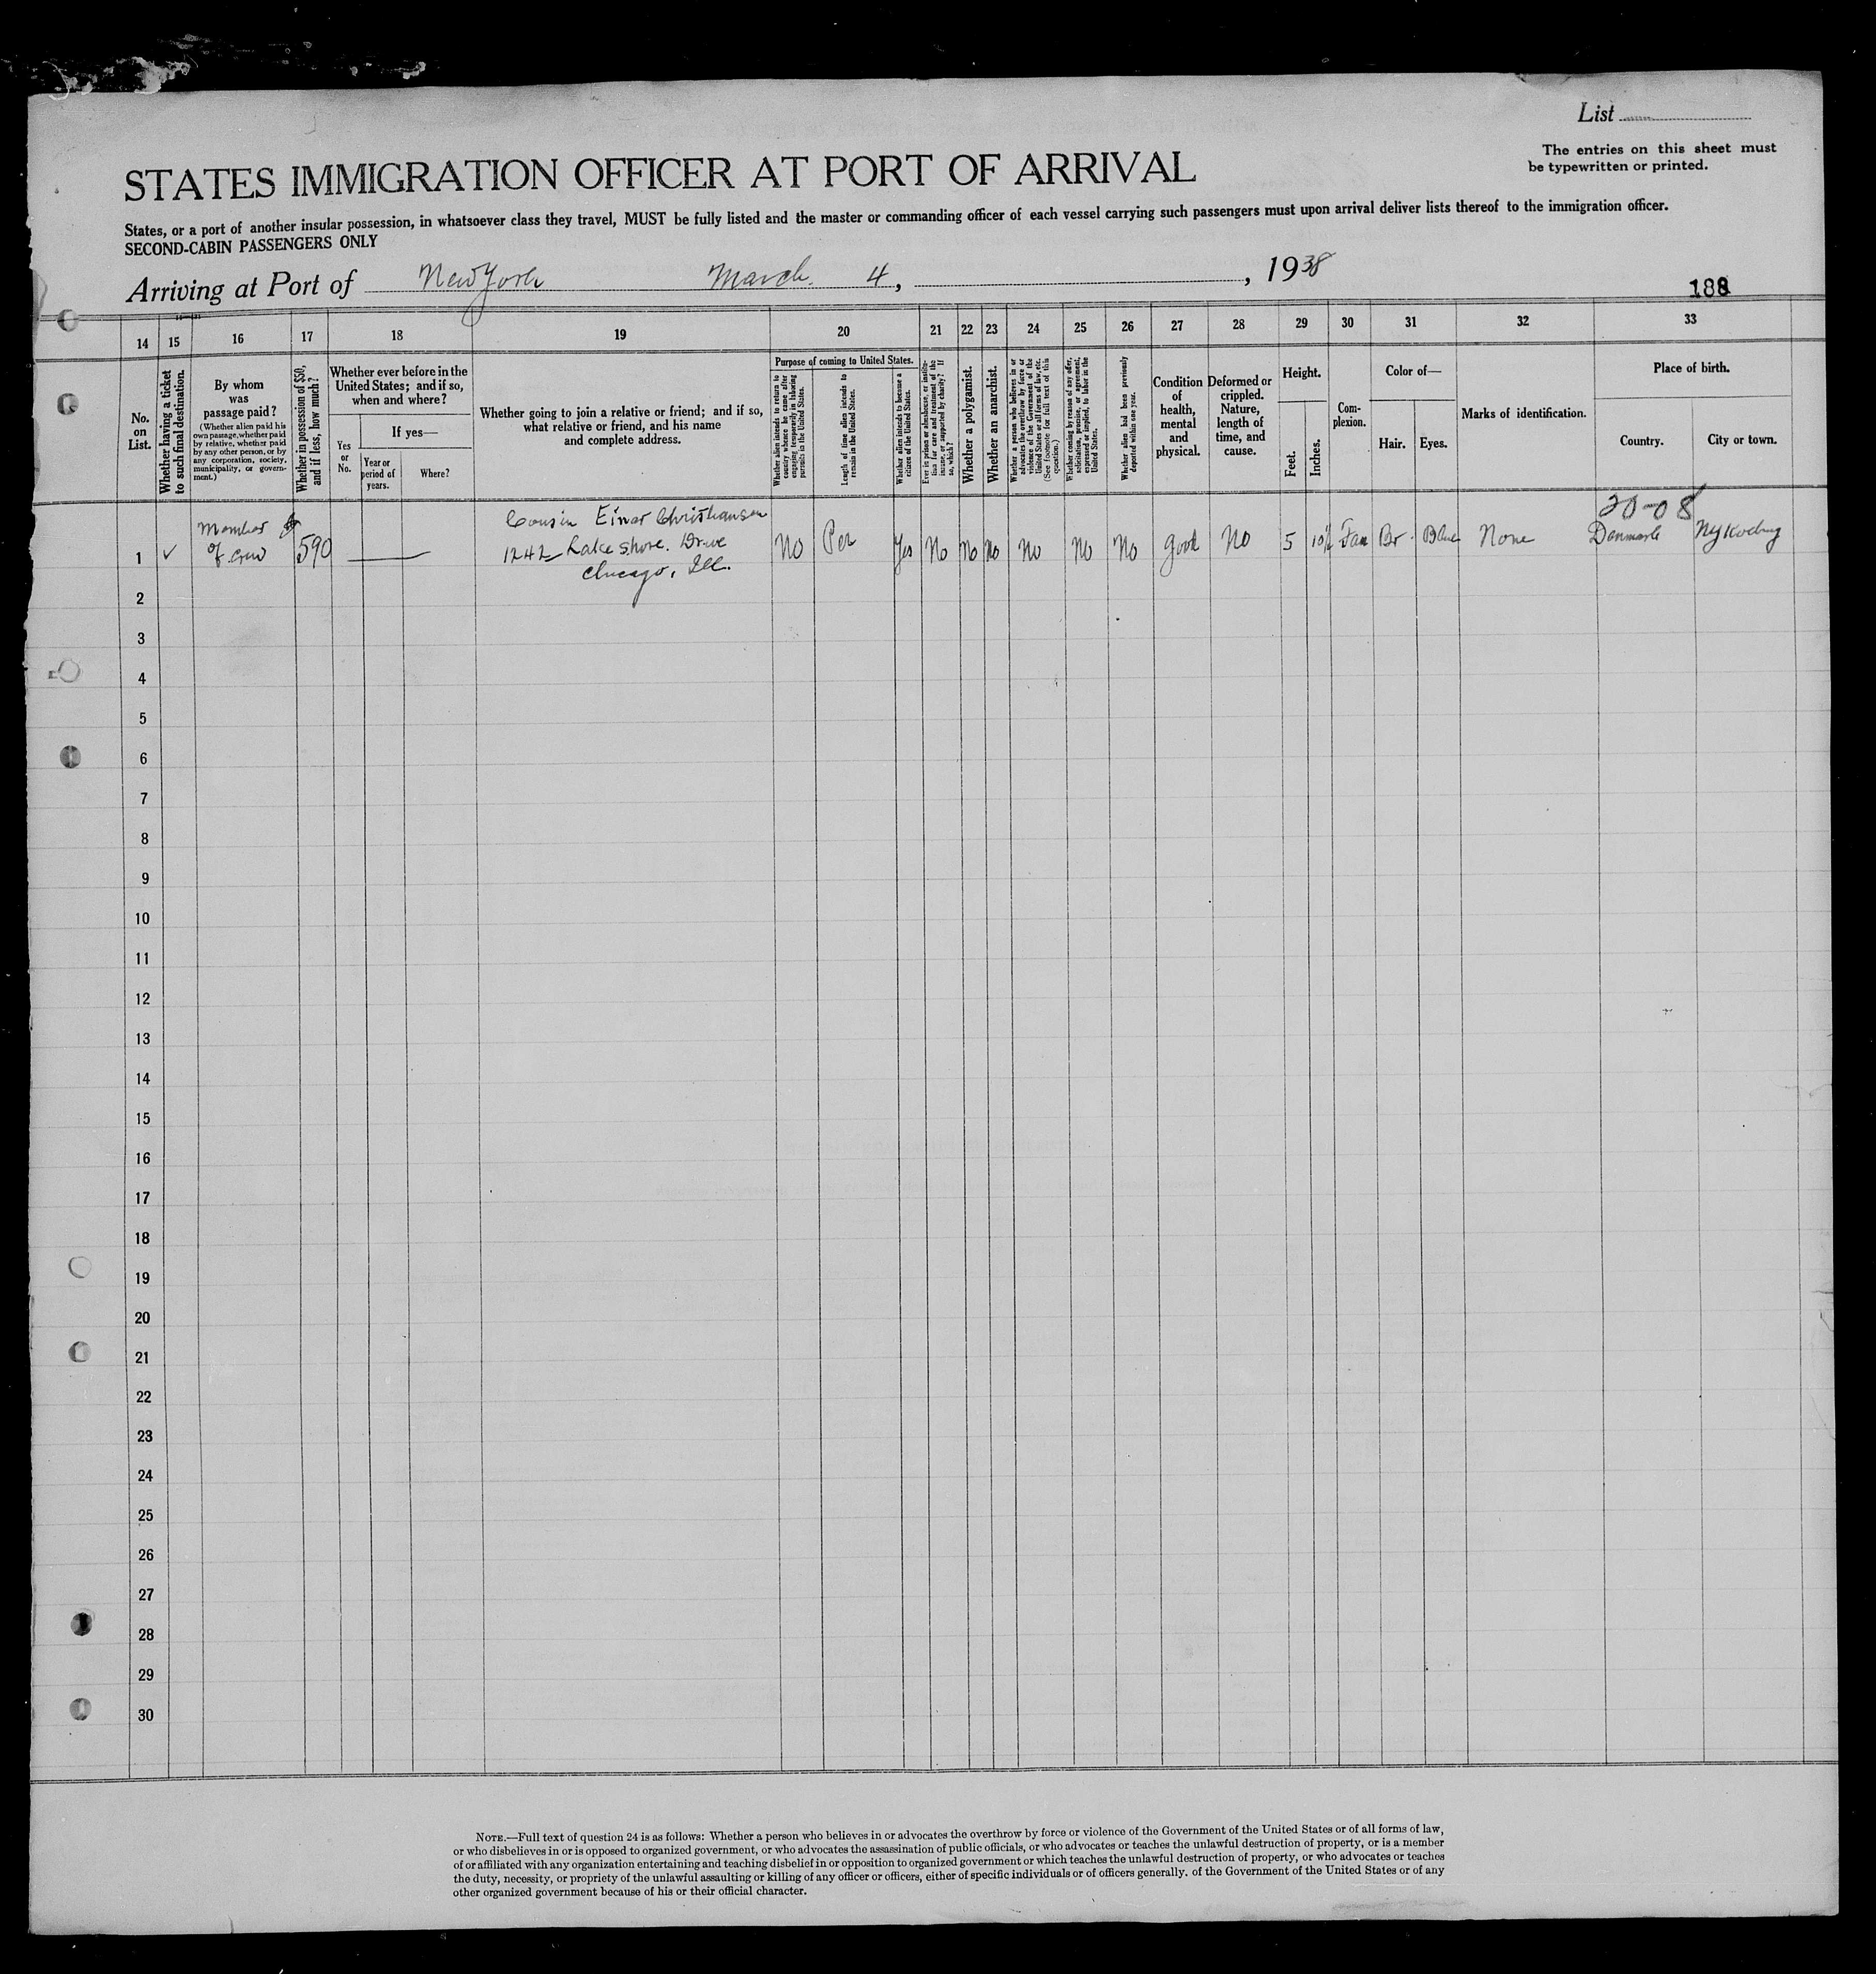 List
The entries on this sheet must
be typewritten or printed.
STATES IMMIGRATION OFFICER AT PORT OF ARRIVAL
States, or a port of another insular possession, in whatsoever class they travel, MUST be fully listed and the master or commanding officer of each vessel carrying such passengers must upon arrival deliver lists thereof to the immigration officer.
SECOND-CABIN PASSENGERS ONLY
Arriving at Port of New York March 4, , 1938
188
14 15 16 17 18 19 20 21 22 23 24 25 26 27 28 29 30 31 32 33
No.
on
List.
Whether having a ticket
to such final destination.
By whom
was
passage paid?
(Whether alien paid his
own passage, whether paid
by relative, whether paid
by any other person, or by
any corporation, society,
municipality, or govern-
ment.)
Whether in possession of $50,
and if less, how much?
Whether ever before in the
United States; and if so,
when and where?
Yes
or
No.
If yes—
Year or
period of
years.
Where?
Whether going to join a relative or friend; and if so,
what relative or friend, and his name
and complete address.
Purpose of coming to United States.
Whether alien intends to return to
country whence he came after
engaging temporarily in laboring
pursuits in the United States.
Length of time alien intends to
remain in the United States.
Whether alien intends to become a
citizen of the United States.
Ever in prison or almshouse, or institu-
tion for care and treatment of the
insane, or supported by charity? If
so, which?
Whether a polygamist.
Whether an anarchist.
Whether a person who believes in or
advocates the overthrow by force or
violence of the Government of the
United States or all forms of law, etc.
(See footnote for full text of this
question.)
Whether coming by reason of any offer,
solicitation, promise, or agreement,
expressed or implied, to labor in the
United States.
Whether alien had been previously
deported within one year.
Condition
of
health,
mental
and
physical.
Deformed or
crippled.
Nature,
length of
time, and
cause.
Height.
Feet.
Inches.
Com-
plexion.
Color of—
Hair.
Eyes.
Marks of identification.
Place of birth.
Country.
City or town.
20-08
Member
of crew
Cousin Einar Christiansen
1242 Lake Shore. Drive
Chicago, Ill.
1 ✓ $590 No Per Yes No No No No No No Good No 5 10½ Fair Br. Blue None Denmark
2
3
4
5
6
7
8
9
10
11
12
13
14
15
16
17
18
19
20
21
22
23
24
25
26
27
28
29
30
NOTE.—Full text of question 24 is as follows: Whether a person who believes in or advocates the overthrow by force or violence of the Government of the United States or of all forms of law,
or who disbelieves in or is opposed to organized government, or who advocates the assassination of public officials, or who advocates or teaches the unlawful destruction of property, or is a member
of or affiliated with any organization entertaining and teaching disbelief in or opposition to organized government or which teaches the unlawful destruction of property, or who advocates or teaches
the duty, necessity, or propriety of the unlawful assaulting or killing of any officer or officers, either of specific individuals or of officers generally. of the Government of the United States or of any
other organized government because of his or their official character.